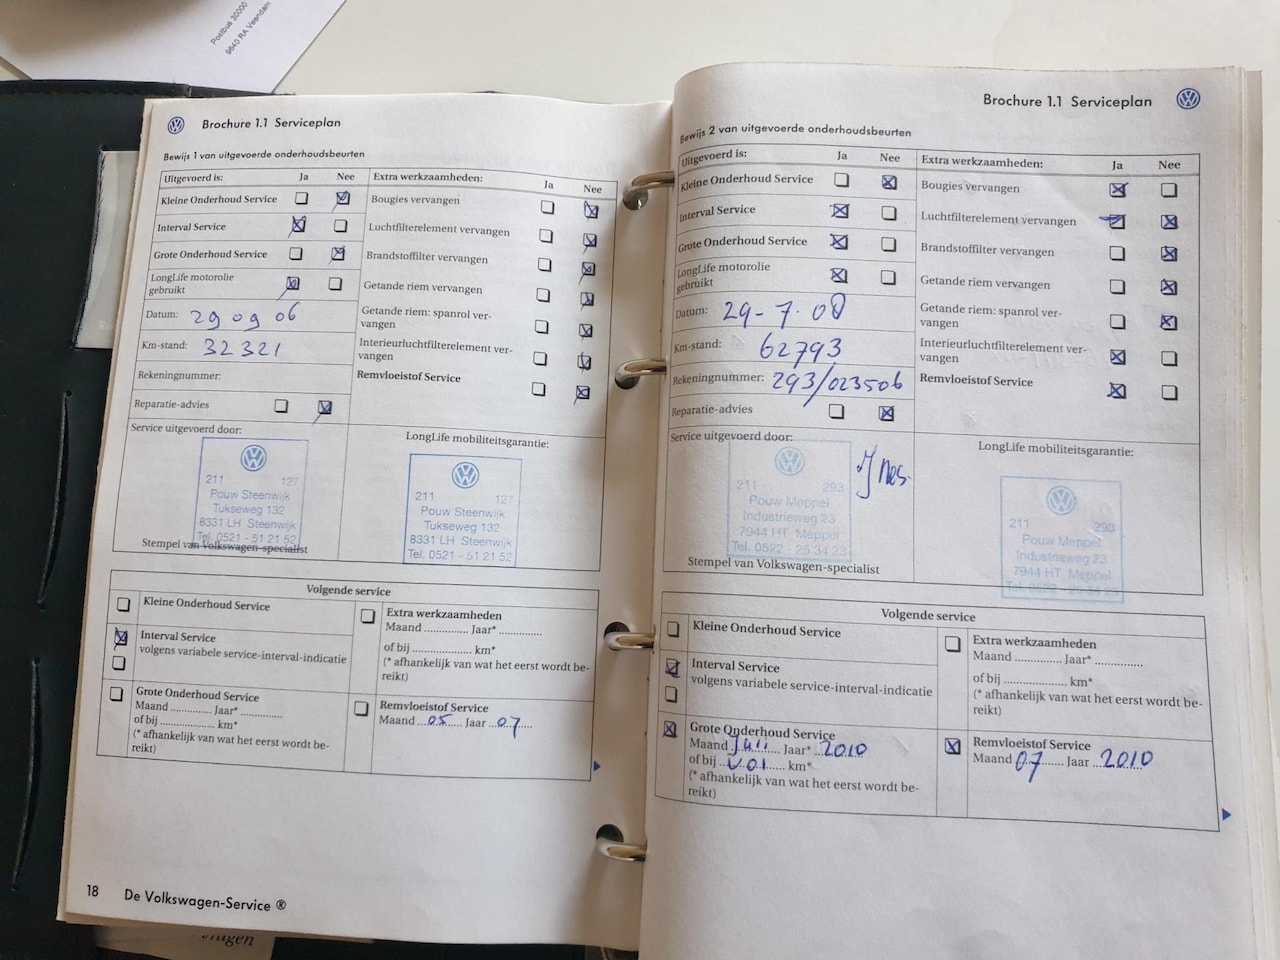 Postbus 30000
9640 RA Veendam
Brochure 1.1 Serviceplan
Bewijs 1 van uitgevoerde onderhoudsbeurten
Uitgevoerd is: Ja Nee
Kleine Onderhoud Service
Interval Service
Grote Onderhoud Service
LongLife motorolie
gebruikt
Datum: 29 09 06
Km-stand: 32321
Rekeningnummer:
Reparatie-advies
Extra werkzaamheden: Ja Nee
Bougies vervangen
Luchtfilterelement vervangen
Brandstoffilter vervangen
Getande riem vervangen
Getande riem: spanrol ver-
vangen
Interieurluchtfilterelement ver-
vangen
Remvloeistof Service
Service uitgevoerd door:
211 127
Pouw Steenwijk
Tukseweg 132
8331 LH Steenwijk
Tel. 0521 - 51 21 52
Stempel van Volkswagen-specialist
LongLife mobiliteitsgarantie:
211 127
Pouw Steenwijk
Tukseweg 132
8331 LH Steenwijk
Tel. 0521 - 51 21 52
Volgende service
Kleine Onderhoud Service
Interval Service
volgens variabele service-interval-indicatie
Grote Onderhoud Service
Maand ............... Jaar* ...............
of bij ................... km*
(* afhankelijk van wat het eerst wordt be-
reikt)
Extra werkzaamheden
Maand ............... Jaar* ...............
of bij ................... km*
(* afhankelijk van wat het eerst wordt be-
reikt)
Remvloeistof Service
Maand 05 Jaar 07
18 De Volkswagen-Service ®
Brochure 1.1 Serviceplan
Bewijs 2 van uitgevoerde onderhoudsbeurten
Uitgevoerd is: Ja Nee
Kleine Onderhoud Service
Interval Service
Grote Onderhoud Service
LongLife motorolie
gebruikt
Datum: 29-7-08
Km-stand: 62793
Rekeningnummer: 293/023506
Reparatie-advies
Extra werkzaamheden: Ja Nee
Bougies vervangen
Luchtfilterelement vervangen
Brandstoffilter vervangen
Getande riem vervangen
Getande riem: spanrol ver-
vangen
Interieurluchtfilterelement ver-
vangen
Remvloeistof Service
Service uitgevoerd door:
211 293
Pouw Meppel
Industrieweg 23
7944 HT Meppel
Tel. 0522 - 25 34 23
Stempel van Volkswagen-specialist
LongLife mobiliteitsgarantie:
211 293
Pouw Meppel
Industrieweg 23
7944 HT Meppel
Tel. 0522 - 25 34 23
Volgende service
Kleine Onderhoud Service
Interval Service
volgens variabele service-interval-indicatie
Grote Onderhoud Service
Maand Juli Jaar* 2010
of bij V01 km*
(* afhankelijk van wat het eerst wordt be-
reikt)
Extra werkzaamheden
Maand ............... Jaar* ...............
of bij ................... km*
(* afhankelijk van wat het eerst wordt be-
reikt)
Remvloeistof Service
Maand 07 Jaar 2010